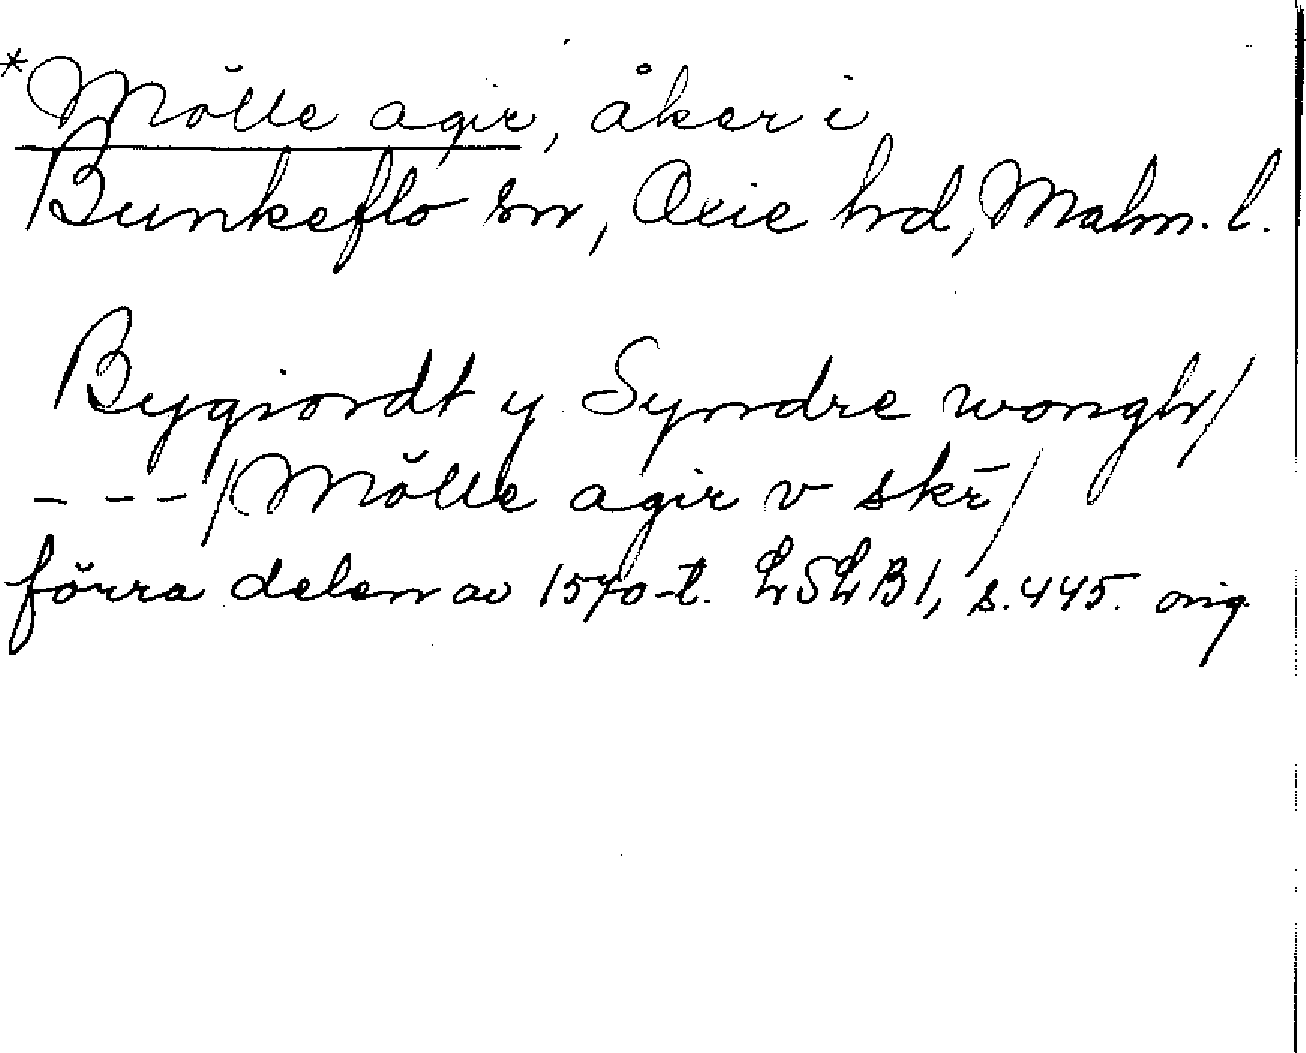 *Mölle agir, åker i
Bunkeflo sn, Oxie hrd, Malm. l.
Bygiordt y Syndre wongh/
- - - /Mölle agir v skr̄/
förra delen av 1570-t. LSLB1, s. 445. orig